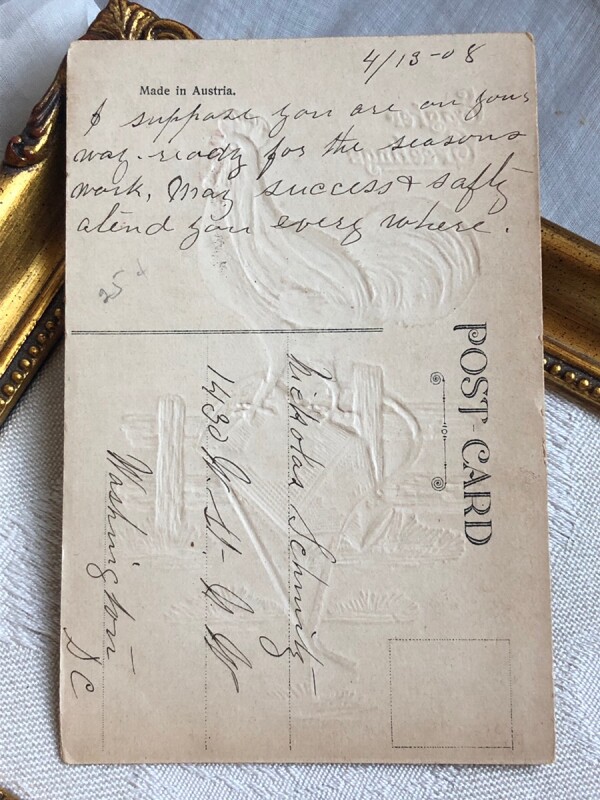 4/13-08
Made in Austria.
I suppose you are on your
way. ready for the seasons
work, May success & safty
atend you every where.
25
POST-CARD
Nickolas Schmitz
1430 W. St- N W
Washington
DC
Easter
Greeting